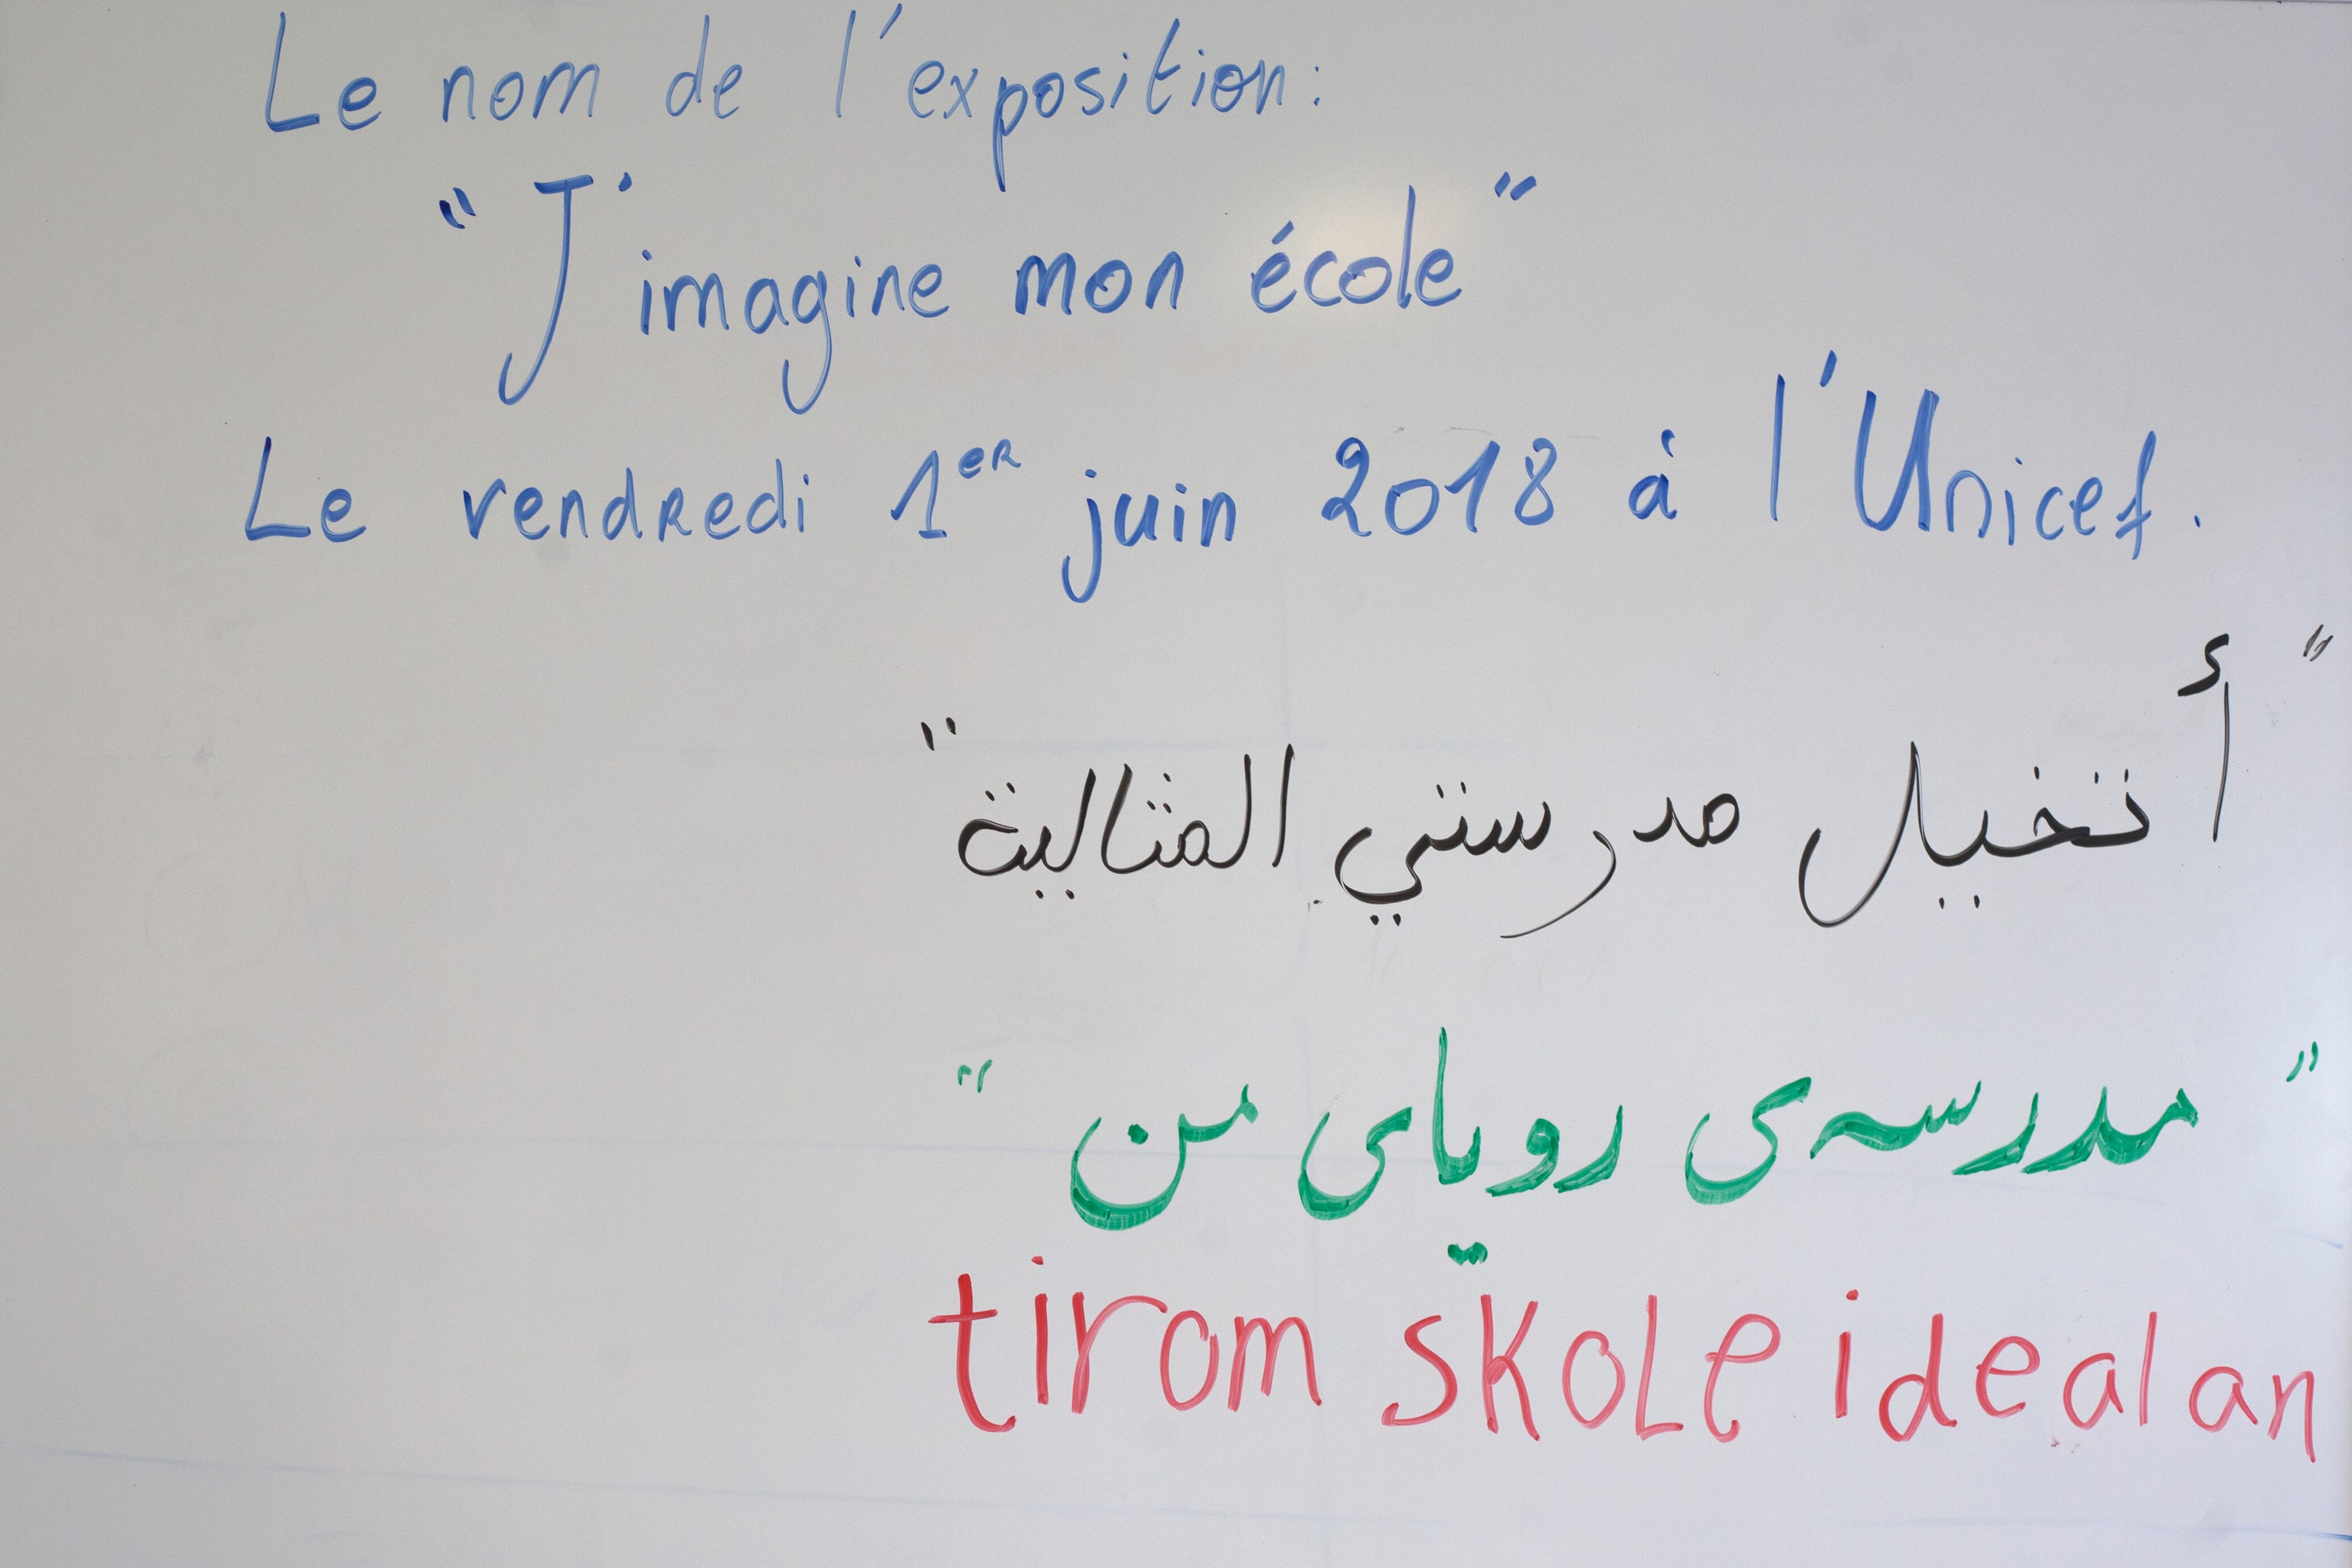 Le nom de l'exposition:
"J'imagine mon école"
Le vendredi 1er juin 2018 à l'Unicef.
"أتخيل مدرستي المثالية"
"مدرسه ی رویای من"
tirom skole idealan